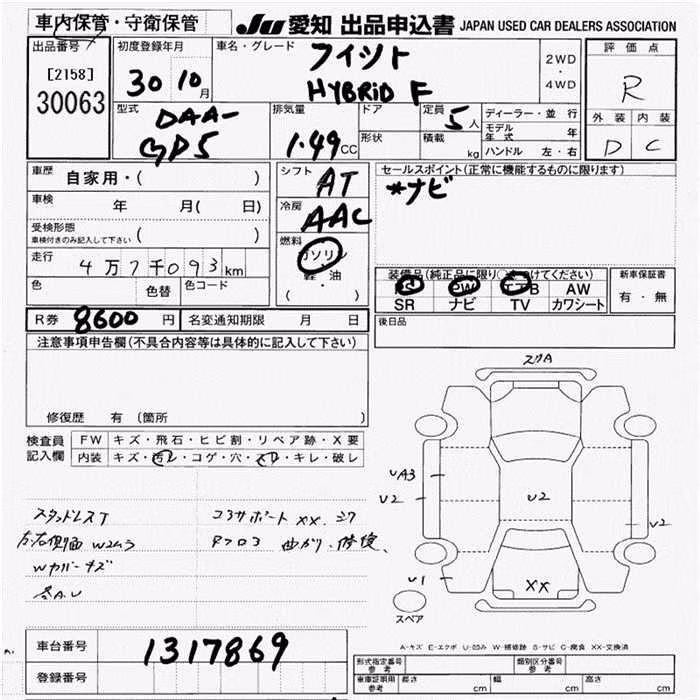 車内保管・守衛保管
JU 愛知 出品申込書 JAPAN USED CAR DEALERS ASSOCIATION
出品番号
[2158]
30063
初度登録年月
30 10月
車名・グレード
フィット
HYBRID F
2WD
・
4WD
評価点
R
外装 内装
D C
型式
DAA-
GP5
排気量
1.49CC
ドア
形状
定員 5人
積載 kg
ディーラー・並行
モデル年式 年
ハンドル 左・右
車歴
自家用・( )
車検
年 月( 日)
受検形態
車検付きのみ記入して下さい ( )
走行
4万7千093km
色 色替 色コード
シフト
AT
冷房
AAC
燃料
ガソリン
軽・油
( )
セールスポイント(正常に機能するものに限ります)
*ナビ
装備品(純正品に限り○をつけてください)
PS PW エアB AW
SR ナビ TV カワシート
新車保証書
有・無
R券 8600円
名変通知期限 月 日
後日品
注意事項申告欄(不具合内容等は具体的に記入して下さい)
修復歴 有(箇所 )
検査員
記入欄
FW キズ・飛石・ヒビ割・リペア跡・X要
内装 キズ・汚レ・コゲ・穴・スレ・キレ・破レ
スタッドレスT
左右側面 W2ムラ
Wカバーキズ
各A.U
コアサポート XX.
曲がり、修復
スリA
UA3
U2
U2
U2
U1
XX
スペア
A-キズ E-エクボ U-凹み W-補修跡 S-サビ C-腐食 XX-交換済
車台番号
1317869
登録番号
形式指定番号
参考
類別区分番号
参考
車庫証明用
参考
長さ cm
幅 cm
高さ cm